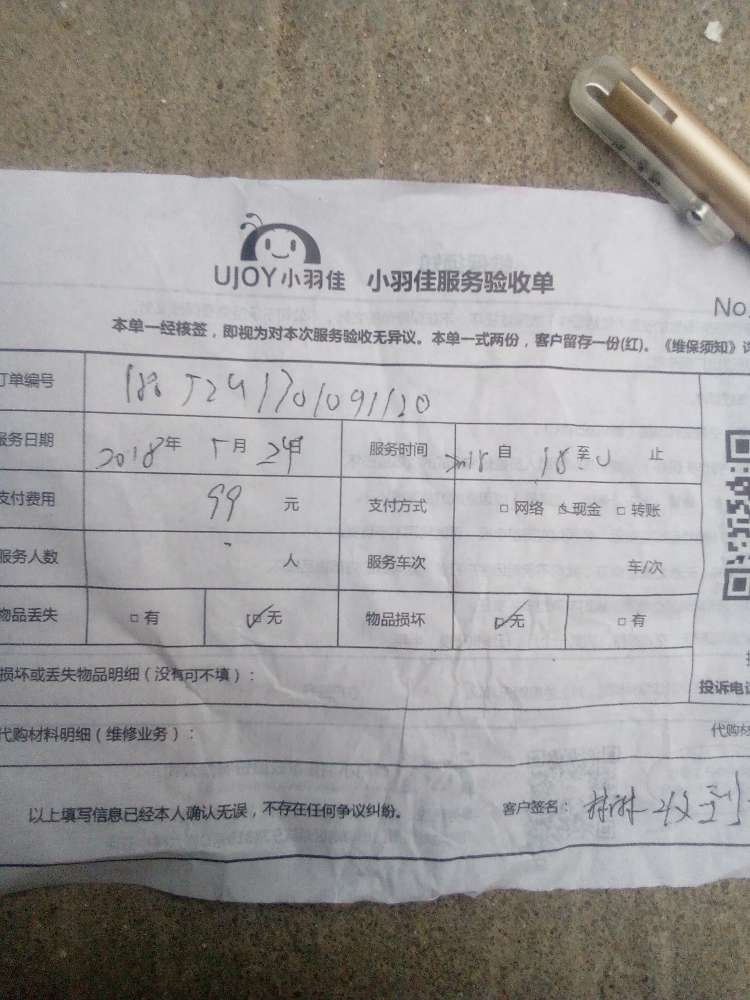 UJOY小羽佳 小羽佳服务验收单
No.
本单一经核签，即视为对本次服务验收无异议。本单一式两份，客户留存一份(红)。《维保须知》详
订单编号
服务日期 2018年 5月 24日 服务时间 自 18 至 止
支付费用 99 元 支付方式 □网络 □现金 □转账
服务人数 人 服务车次 车/次
物品丢失 □有 ☑无 物品损坏 ☑无 □有
损坏或丢失物品明细（没有可不填）：
投诉电话
代购材料明细（维修业务）： 代购材
以上填写信息已经本人确认无误，不存在任何争议纠纷。 客户签名：